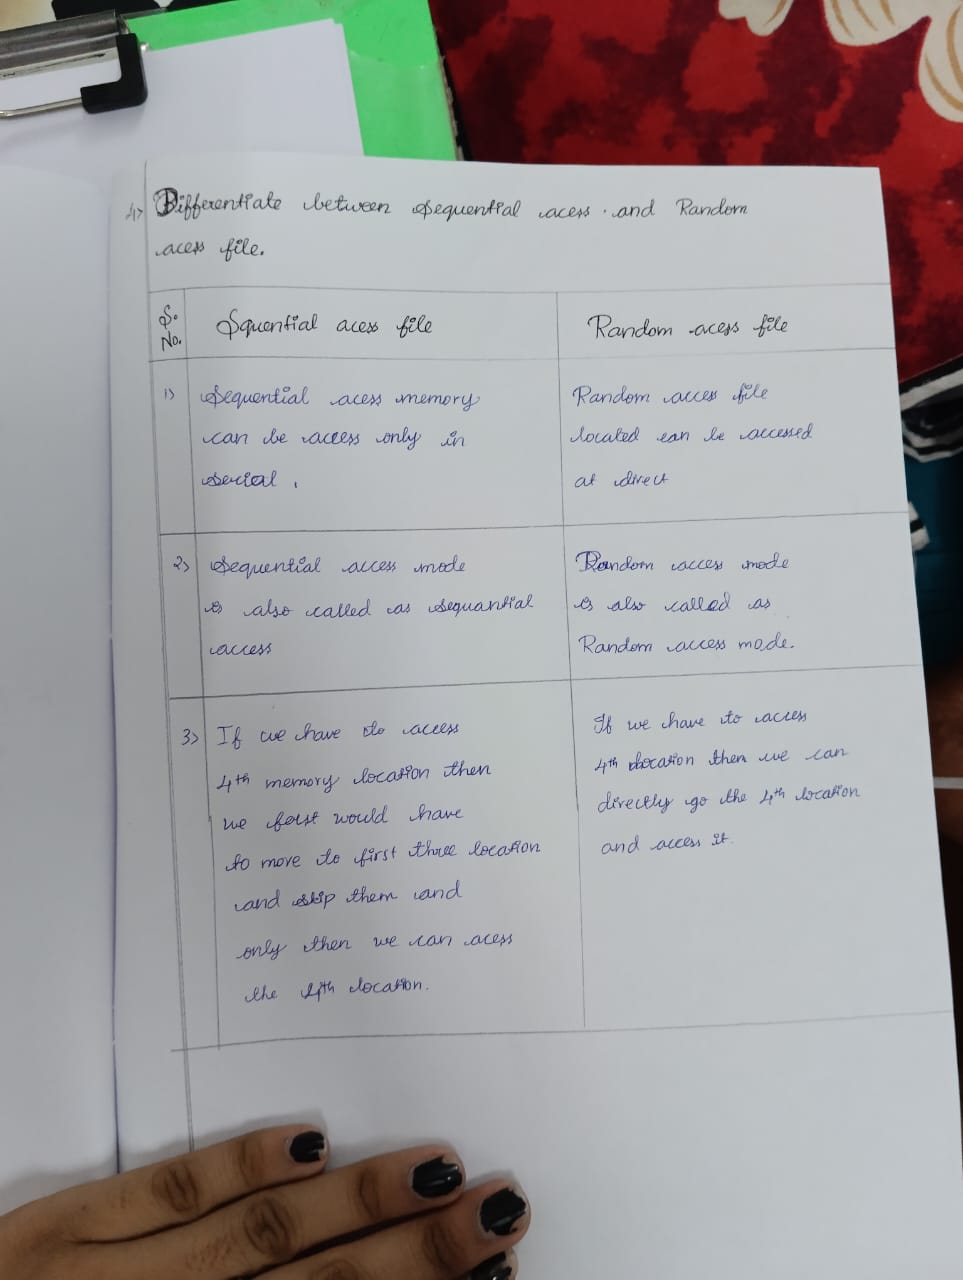 4) Differentiate between Sequential acess and Random
acess file.
S. No.
Squential acess file
Random acess file
1)
Sequential acess memory
can be access only in
serial.
Random access file
located can be accessed
at direct
2)
Sequential access mode
is also called as sequantial
access
Random access mode
is also called as
Random access mode.
3)
If we have to access
4th memory location then
we forst would have
to move to first three location
and skip them and
only then we can acess
the 4th location.
If we have to access
4th location then we can
directly go the 4th location
and access it.